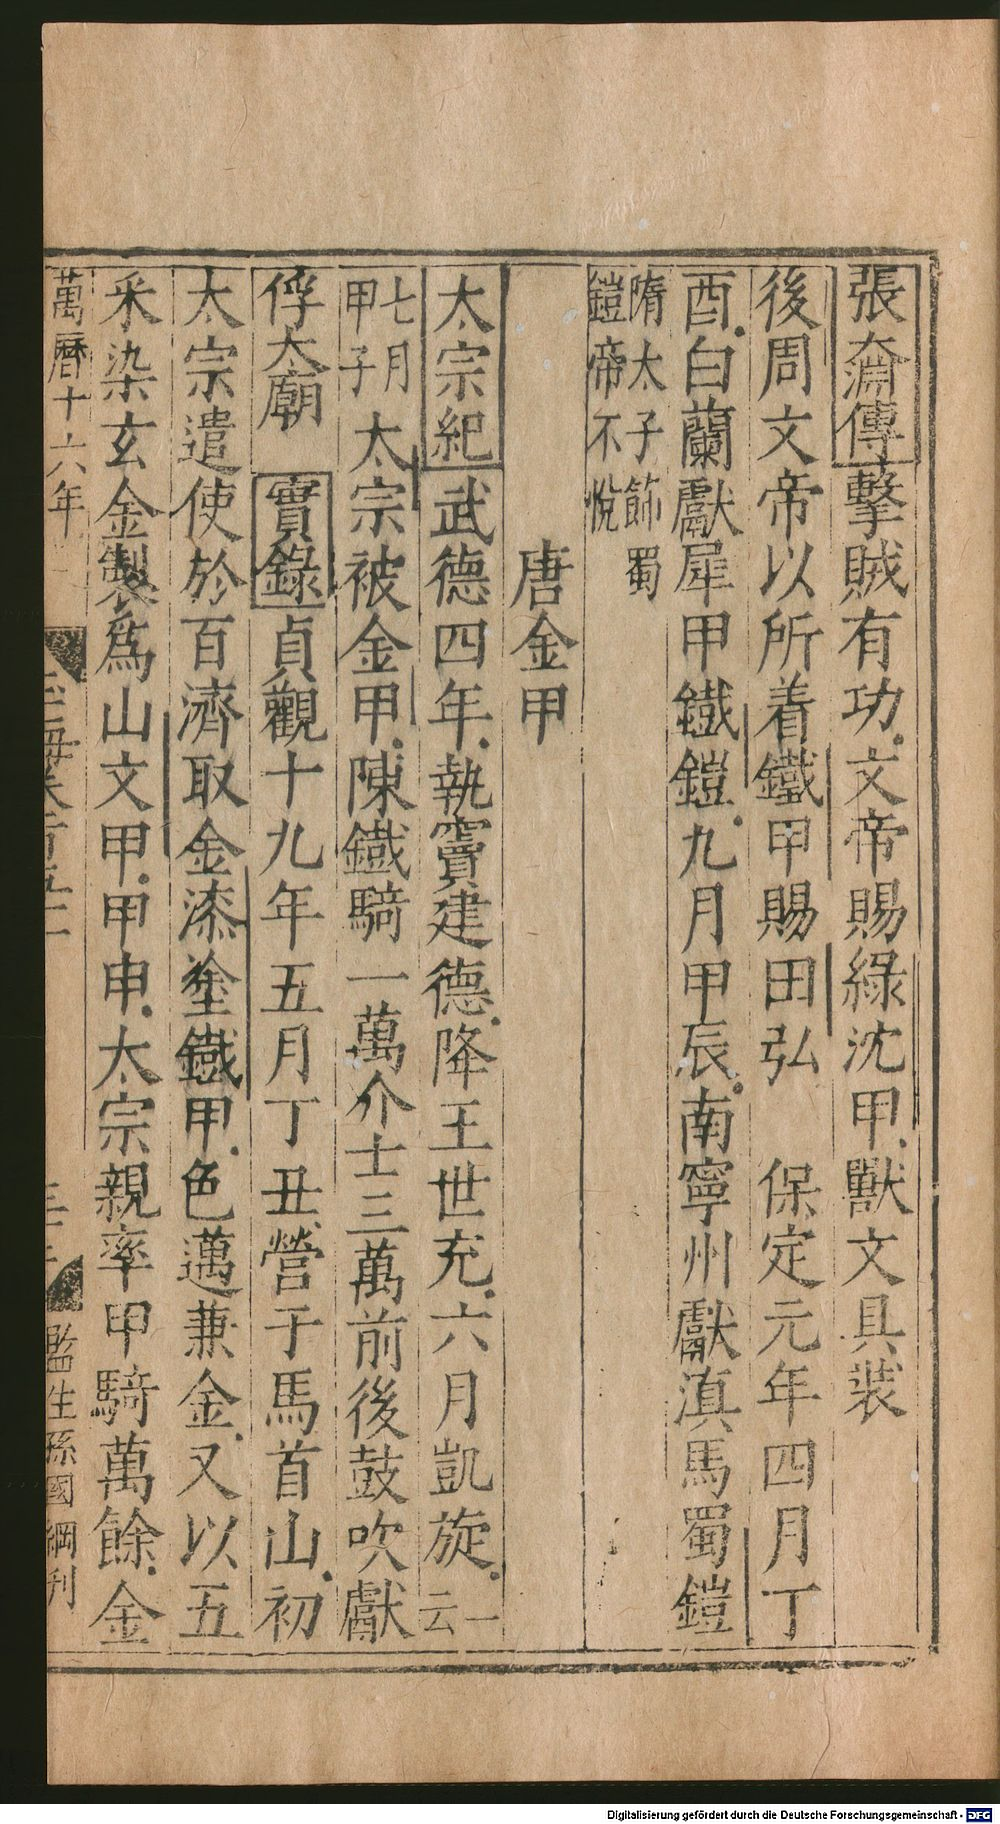 張奫傳擊賊有功文帝賜綠沈甲獸文具裝
後周文帝以所着鐵甲賜田弘　保定元年四月丁
酉白蘭獻犀甲鐵鎧九月甲辰南寧州獻滇馬蜀鎧
隋太子飾蜀
鎧帝不悅
唐金甲
太宗紀武德四年執竇建德降王世充六月凱旋一云
七月甲子太宗被金甲陳鐵騎一萬介士三萬前後鼓吹獻
俘太廟　實錄貞觀十九年五月丁丑營于馬首山初
太宗遣使於百濟取金漆塗鐵甲色邁兼金又以五
采染玄金製爲山文甲甲申太宗親率甲騎萬餘金
萬曆十六年　玉海卷百五十一　監生孫國綱刋
Digitalisierung gefördert durch die Deutsche Forschungsgemeinschaft - DFG